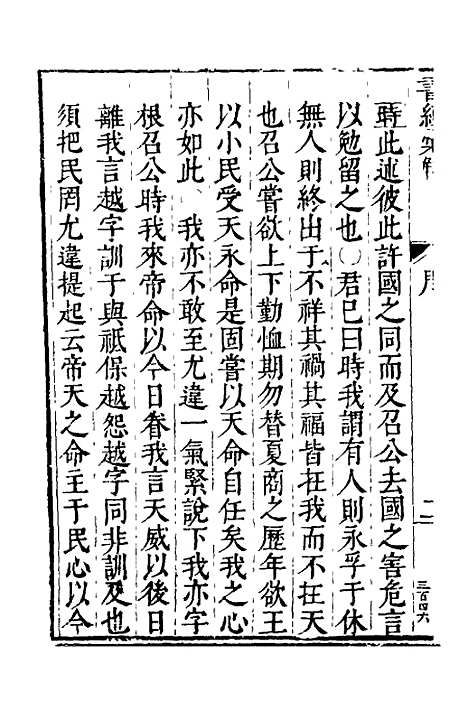 書經
周
二
三百四六
時此述彼此許國之同而及召公去國之害危言
以勉留之也〇君已曰時我謂有人則永孚于休
無人則終出于不祥其禍其福皆在我而不在天
也召公嘗欲上下勤恤期勿替夏商之歷年欲王
以小民受天永命是固嘗以天命自任矣我之心
亦如此、我亦不敢至尤違一氣緊說下我亦字
根召公時我來帝命以今日眷我言天威以後日
離我言越字訓于與祇保越怨越字同非訓及也
須把民罔尤違提起云帝天之命主于民心以今